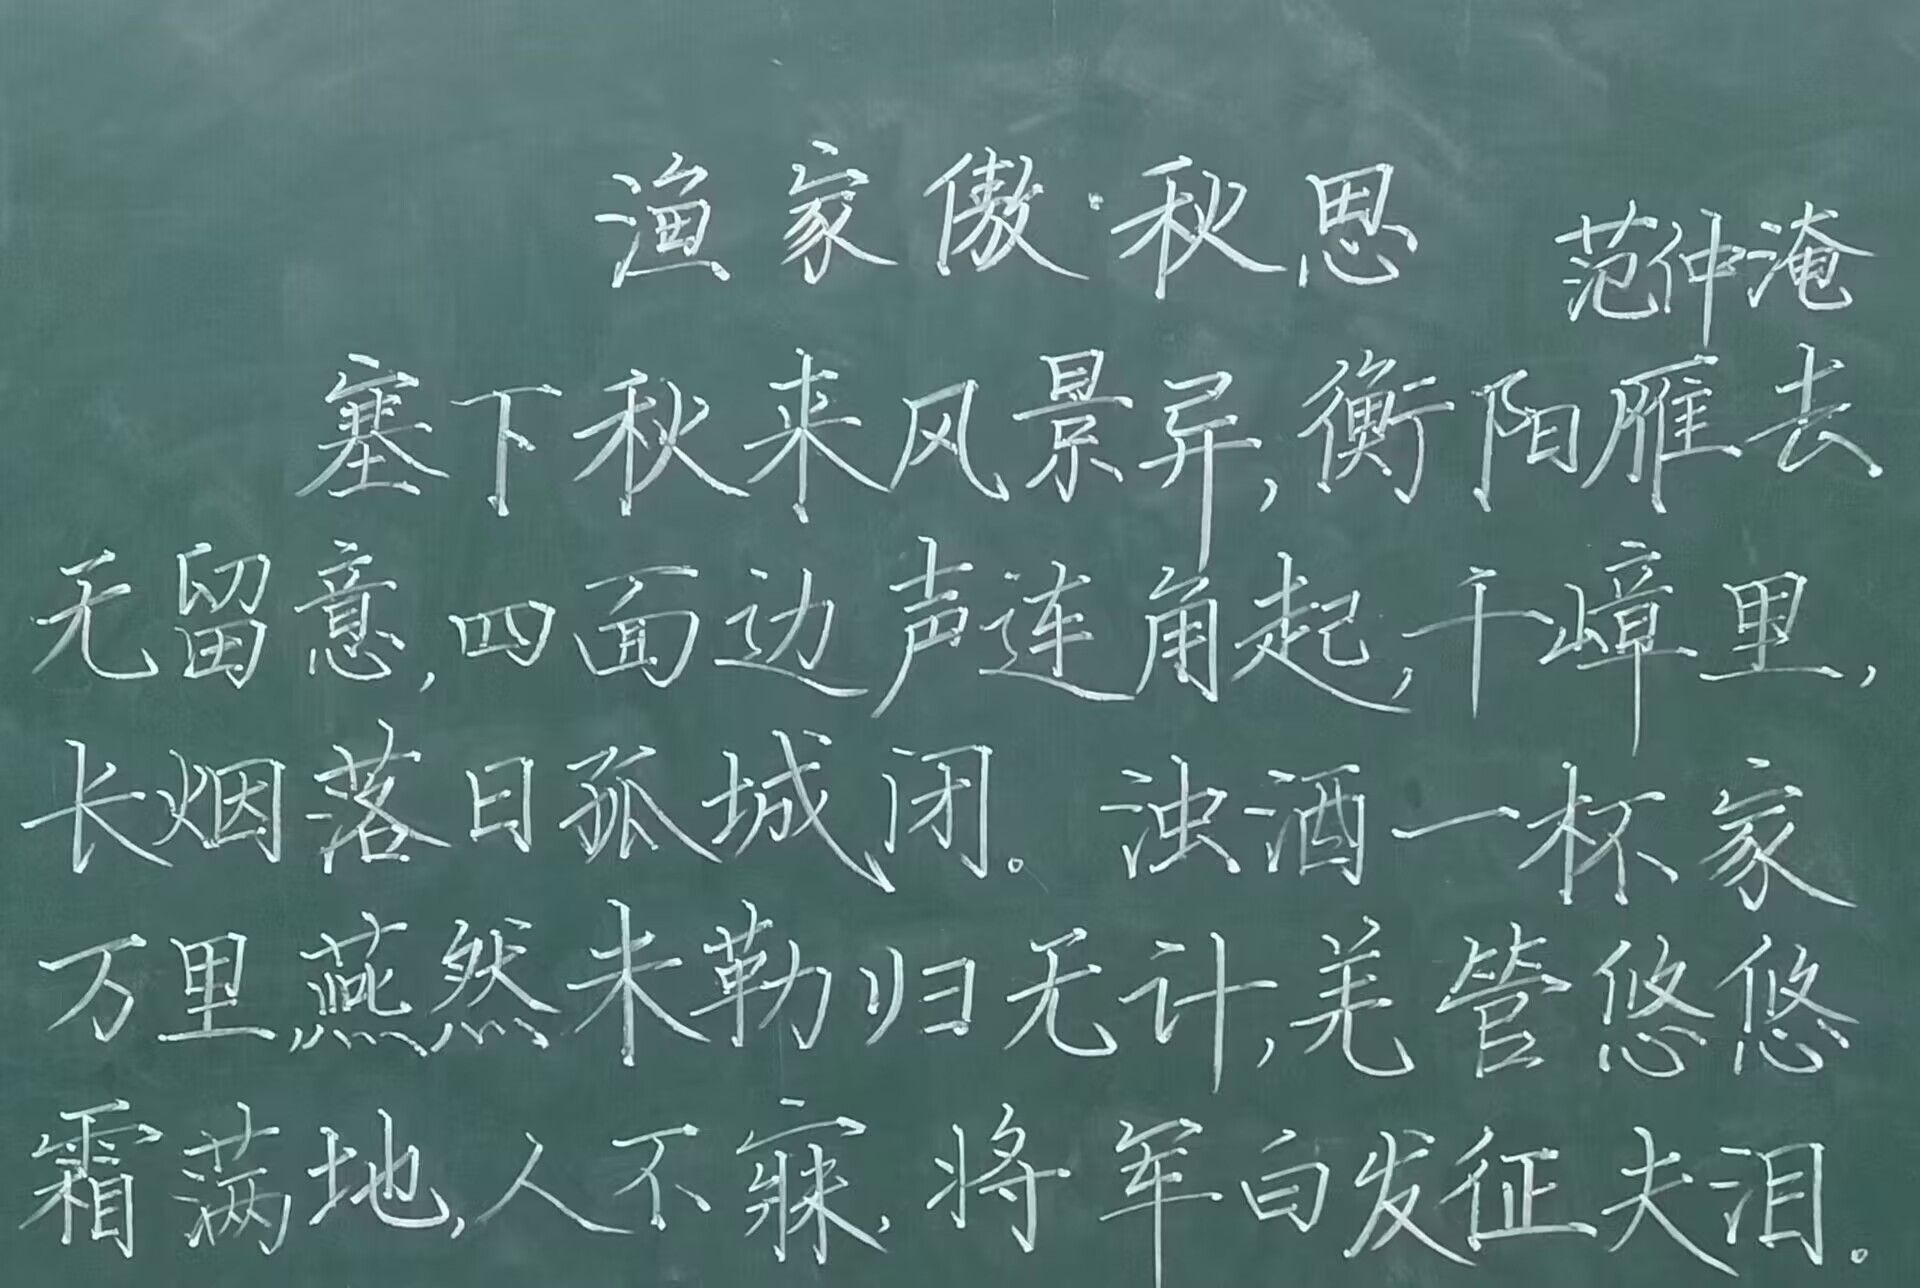 渔家傲·秋思
范仲淹
塞下秋来风景异,衡阳雁去
无留意,四面边声连角起,千嶂里,
长烟落日孤城闭。浊酒一杯家
万里燕然未勒归无计,羌管悠悠
霜满地,人不寐,将军白发征夫泪。